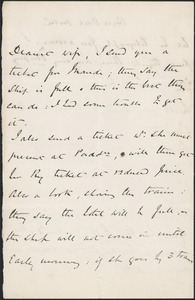 Dearest wife, I send you a
ticket for Monday; they say the
ship is full & this is the best they
can do; I had some trouble to get
it.
I also send a ticket wh. she must
present at Padd., & with them get
her Ry ticket at reduced price
Also a book, showing the trains;
they say the Hotel will be full, &
the ship will not come in until
Early morning; if she goes by 3 train